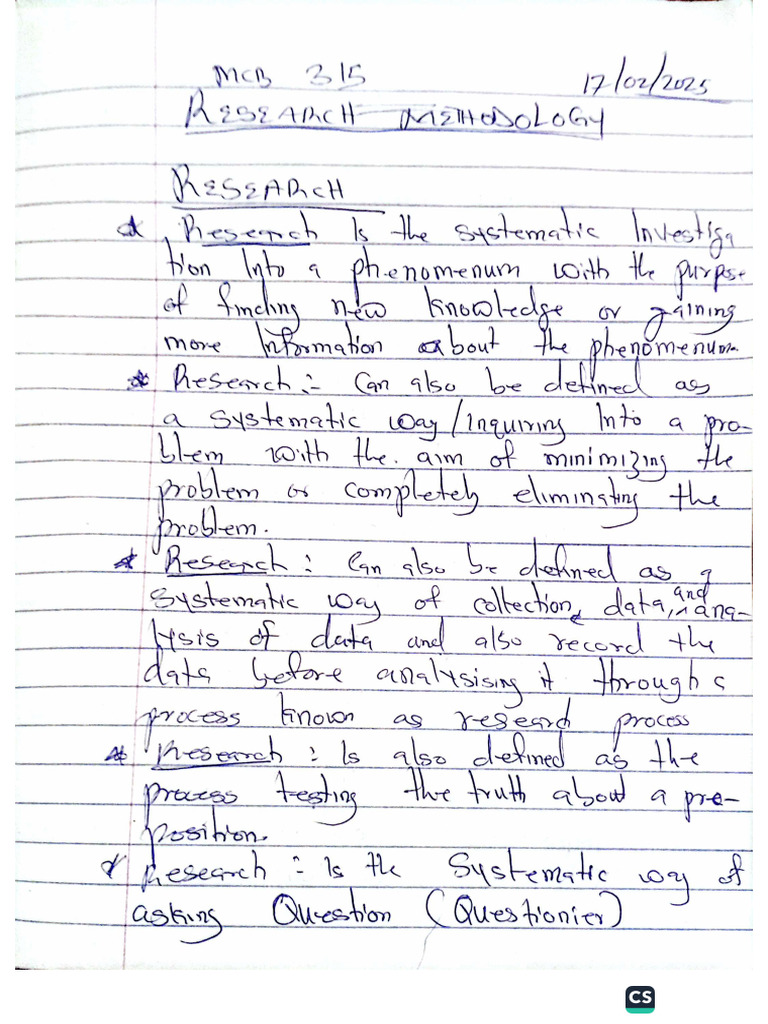 MCB 315 17/02/2025
RESEARCH METHODOLOGY
RESEARCH
* Research Is the systematic Investiga
tion Into a phenomenum with the purpose
of finding new knowledge or gaining
more Information about the phenomenum
* Research:- Can also be defined as
a systematic way/inquiring Into a pro-
blem with the aim of minimizing the
problem or completely eliminating the
problem.
* Research: Can also be defined as a
systematic way of collection, data, and ana-
lysis of data and also record the
data before analysising it through a
process known as research process
* Research: Is also defined as the
process testing the truth about a pre-
position.
* Research:- Is the Systematic way of
asking Question (Questionier)
CS